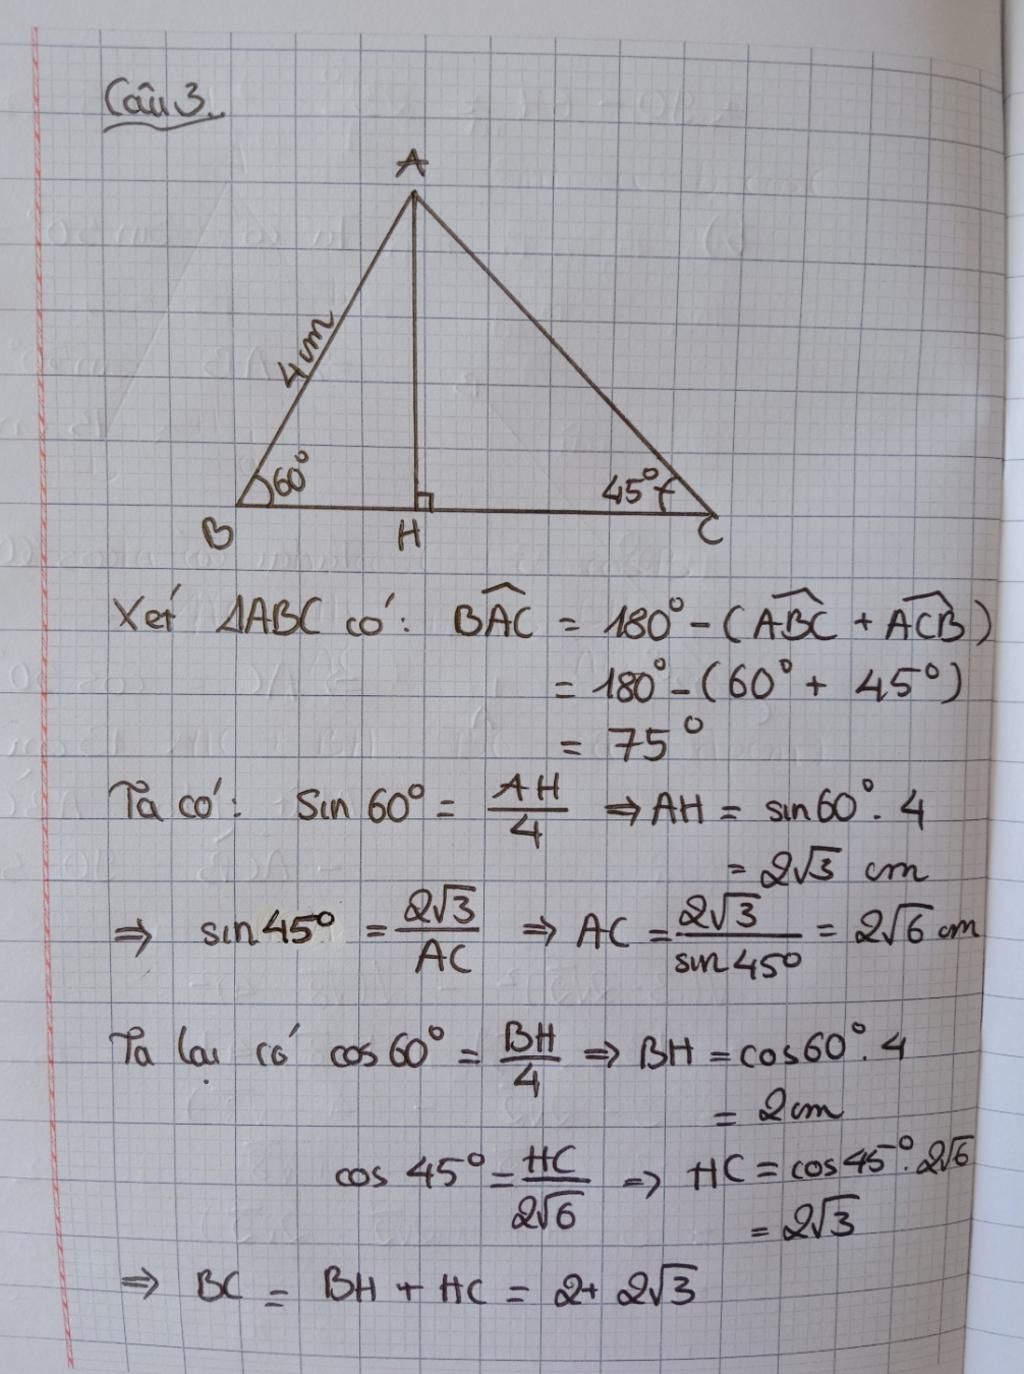 Câu 3.
A
4cm
60°
45°
B H C
Xét ΔABC có: \widehat{BAC} = 180° - (\widehat{ABC} + \widehat{ACB})
= 180° - (60° + 45°)
= 75°
Ta có: Sin 60° = \frac{AH}{4} ⇒ AH = sin60° . 4
= 2√3 cm
⇒ sin45° = \frac{2√3}{AC} ⇒ AC = \frac{2√3}{sin45°} = 2√6 cm
Ta lại có cos60° = \frac{BH}{4} ⇒ BH = cos60° . 4
= 2cm
cos 45° = \frac{HC}{2√6} ⇒ HC = cos45° . 2√6
= 2√3
⇒ BC = BH + HC = 2 + 2√3